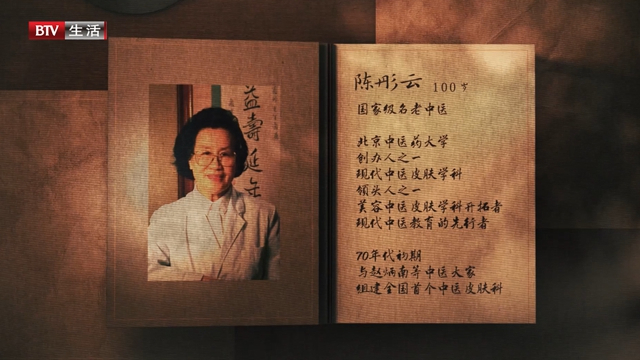 BTV 生活
益壽延年
陈彤云 100岁
国家级名老中医
北京中医药大学
创办人之一
现代中医皮肤学科
领头人之一
美容中医皮肤学科开拓者
现代中医教育的先行者
70年代初期
与赵炳南等中医大家
组建全国首个中医皮肤科